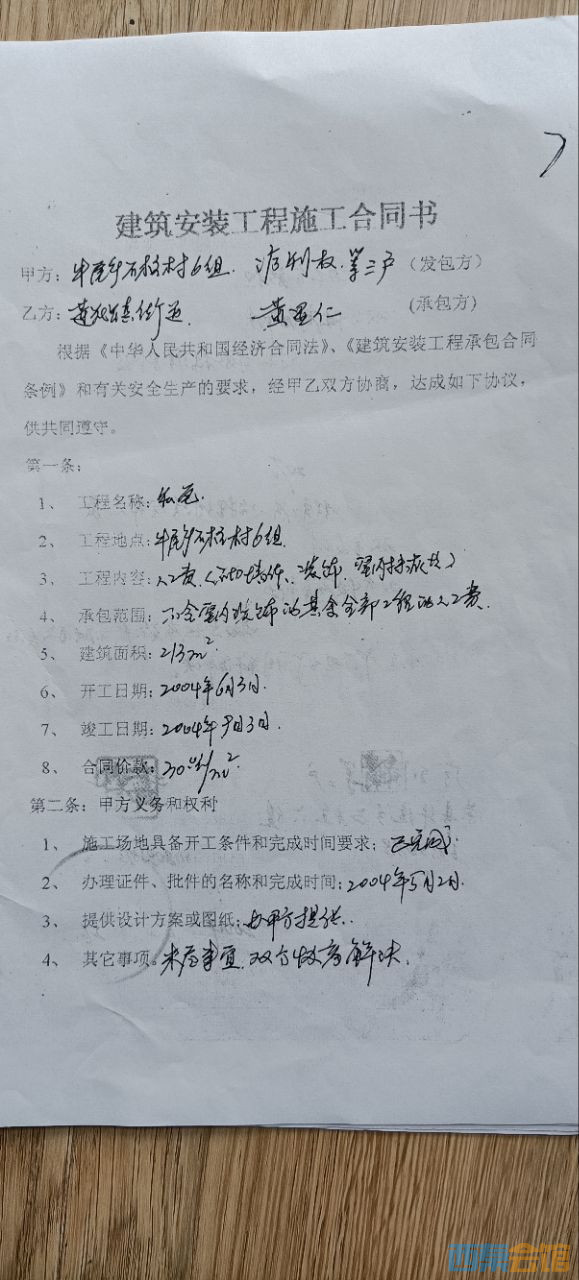 建筑安装工程施工合同书
甲方：石柱村6组 第三户（发包方）
乙方：镇街道 黄 仁（承包方）
根据《中华人民共和国经济合同法》、《建筑安装工程承包合同
条例》和有关安全生产的要求，经甲乙双方协商，达成如下协议，
供共同遵守。
第一条：
1、 工程名称：私宅
2、 工程地点：石柱村6组
3、 工程内容：人工费
4、 承包范围：不含室内装饰的其余全部工程的人工费.
5、 建筑面积：213m²
6、 开工日期：2004年6月3日.
7、 竣工日期：2004年9月3日.
8、 合同价款：30元/m²
第二条：甲方义务和权利
1、 施工场地具备开工条件和完成时间要求：已完成
2、 办理证件、批件的名称和完成时间：2004年5月2日.
3、 提供设计方案或图纸：由甲方提供.
4、 其它事项。未尽事宜.双方协商解决.
西泵会馆